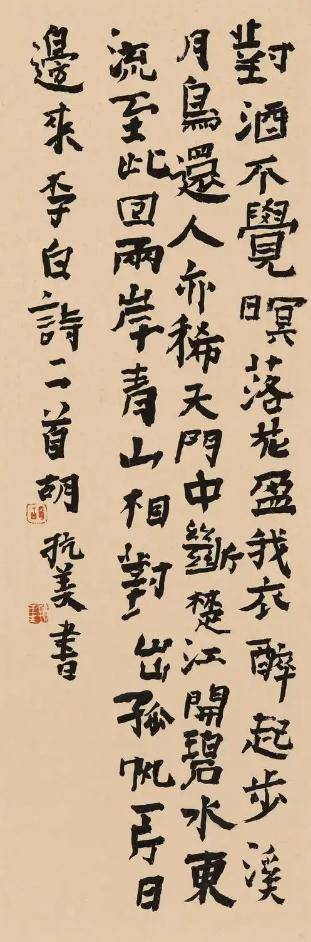 對酒不覺暝落花盈我衣醉起步溪
月鳥還人亦稀天門中斷楚江開碧水東
流至此回兩岸青山相對出孤帆一片日
邊來李白詩二首胡抗美書